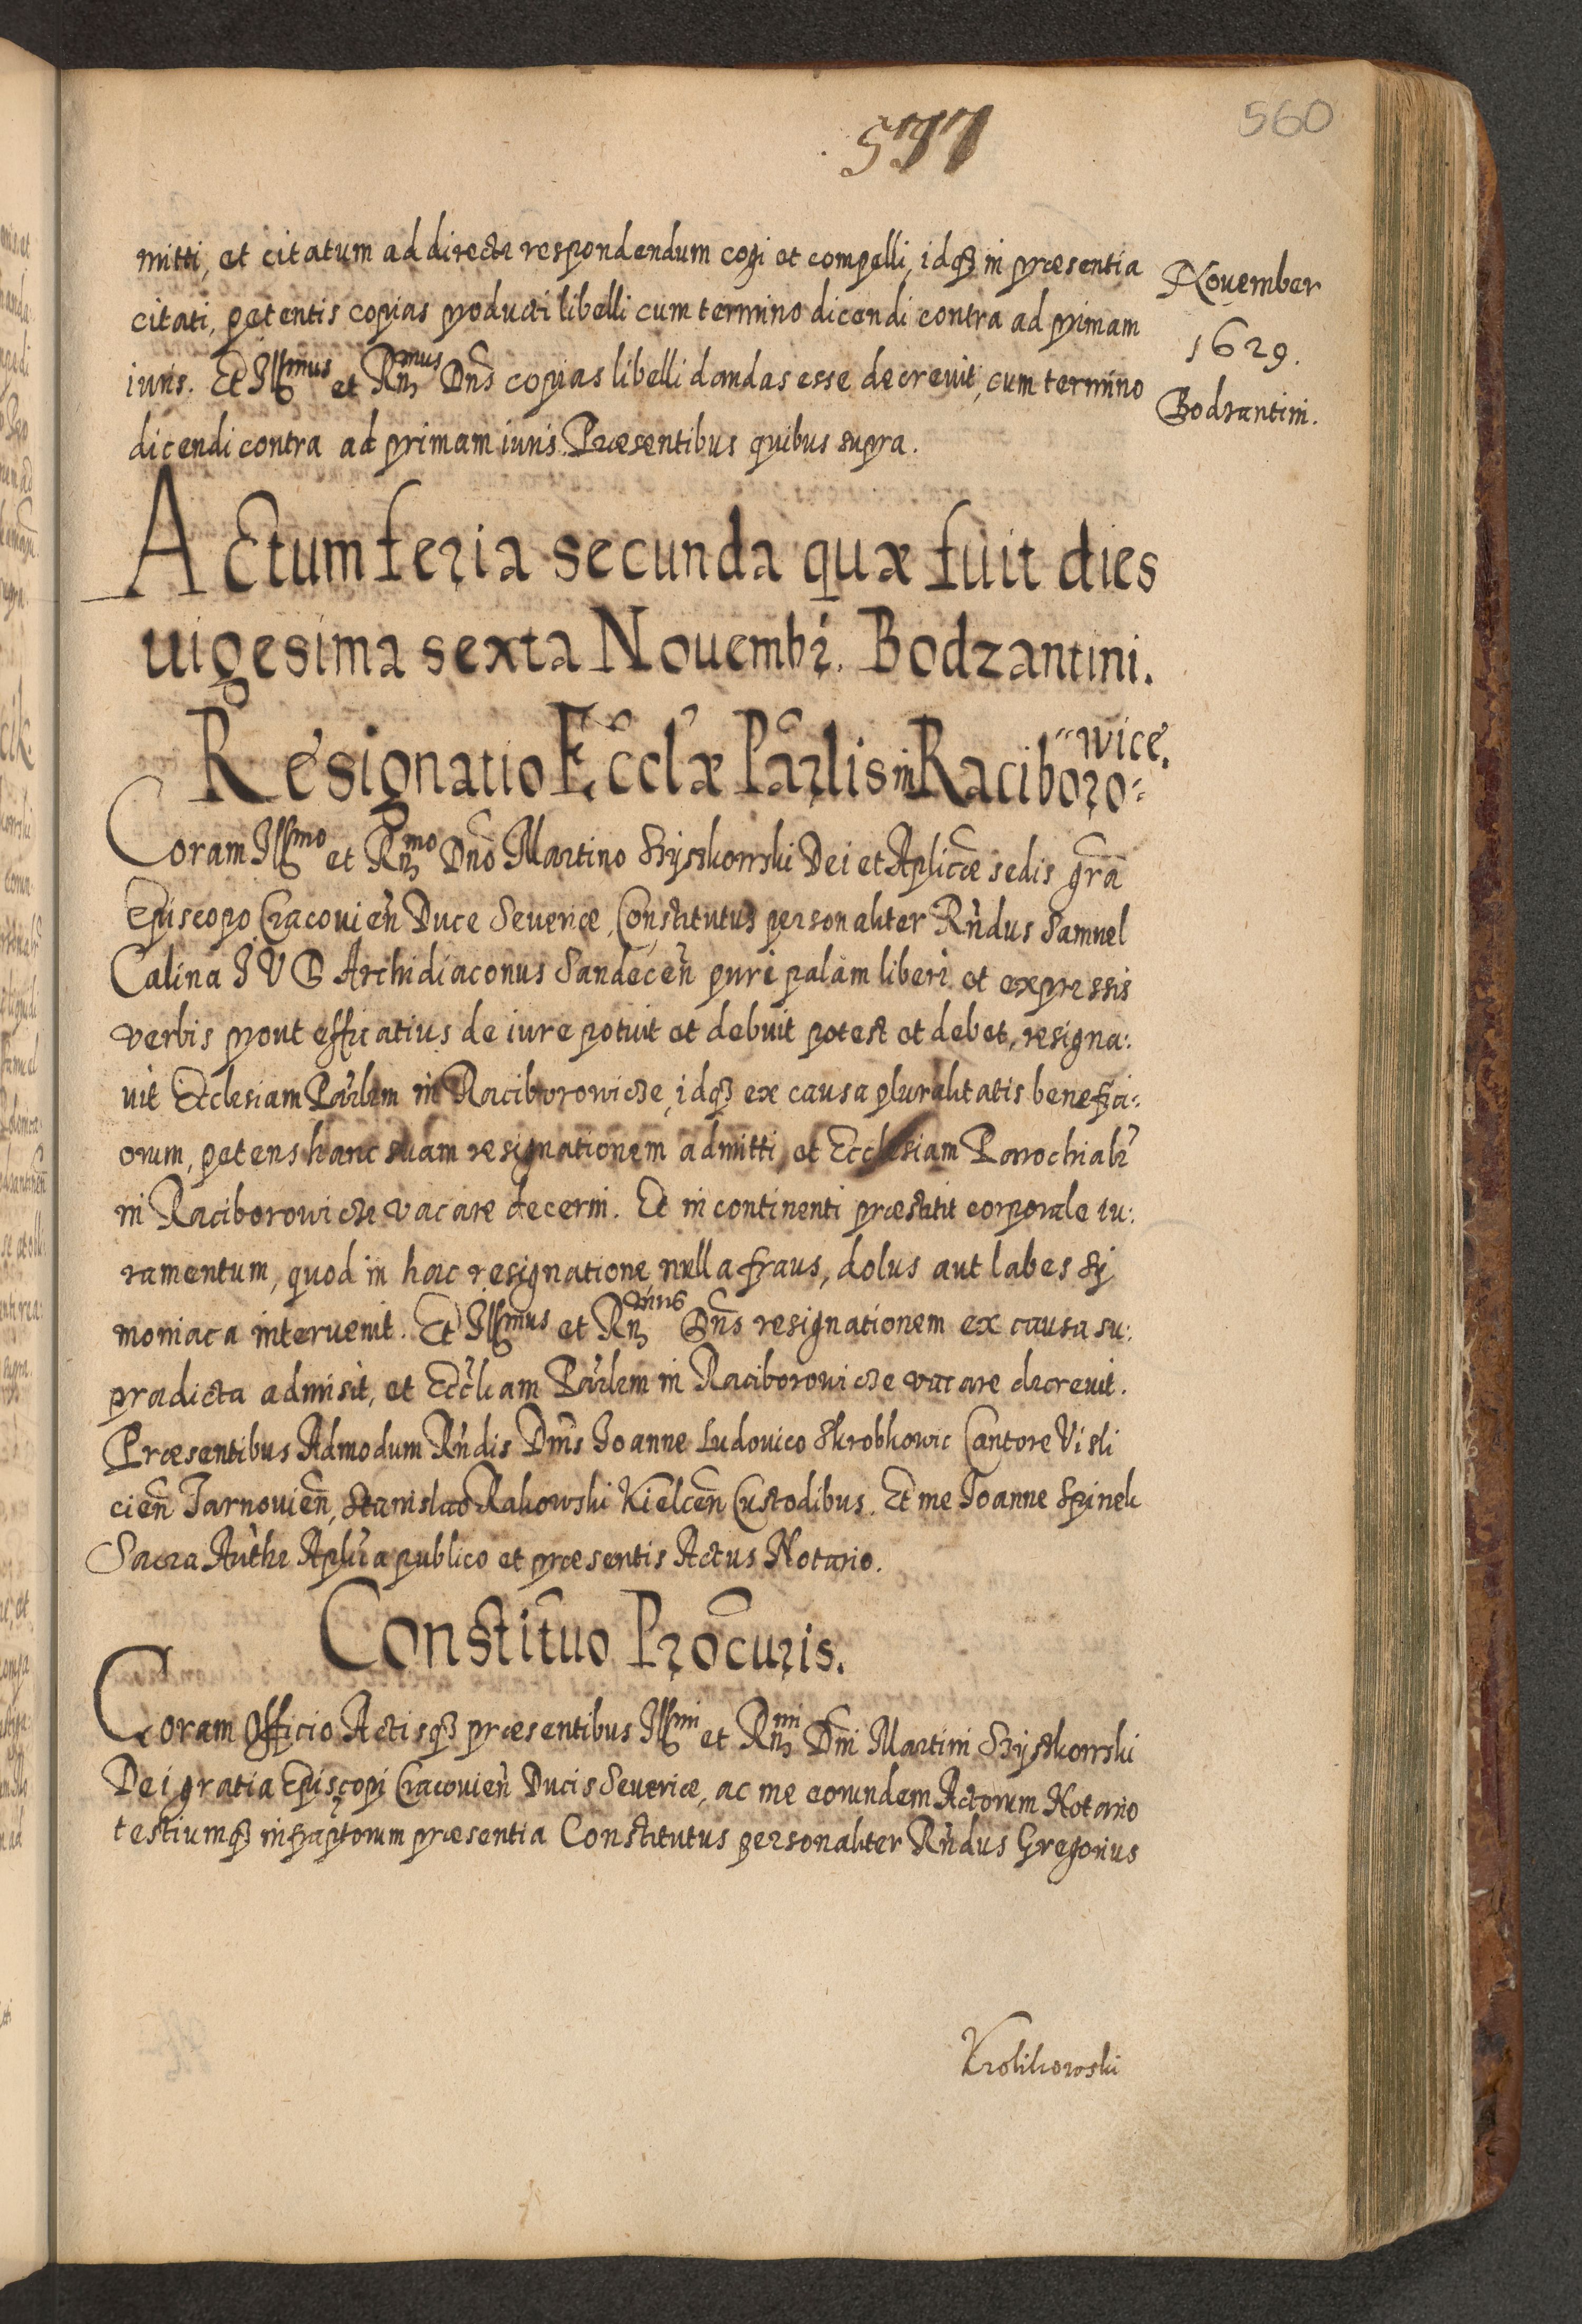 577
560
mitti, et citatum ad directe respondendum cogi et compelli, idq3 in præsentia
citati, petentis copias producti libelli cum termino dicendi contra ad primam
iuris. Et Illmus et Rmus Dns copias libelli dandas esse decrevit, cum termino
dicendi contra ad primam iuris. Præsentibus quibus supra.
November
1629.
Bodzantini.
Actum feria secunda quæ fuit dies
uigesima sexta Nouembr. Bodzantini.
Resignatio Ecclæ Parlis in Raciboro=
wice.
Coram Illmo et Rmo Dno Martino Szyszkowski Dei et Aplicæ sedis gra
Episcopo Cracovien Duce Severiæ, Constitutus personaliter Rndus Samuel
Calina I V D Archidiaconus Sandecen pure palam libere et expressis
verbis prout efficatius de iure potuit et debuit potest et debet, resigna:
uit Ecclesiam Parlem in Raciborowicze, idq3 ex causa pluralitatis benefici:
orum, petens hanc suam resignationem admitti, et Ecclesiam Parochiale
in Raciborowicze vacare decerni. Et in continenti præstitit corporale iu:
ramentum, quod in hac resignatione nulla fraus, dolus aut labes sy
moniaca intervenit. Et Illmus et Rmus Dns resignationem ex causa su:
pradicta admisit, et Eccliam Parlem in Raciborowicze vacare decrevit.
Præsentibus Admodum Rndis Dnis Joanne Ludovico Skrobkowic Cantore Visli
cien Tarnovien, Stanislao Rakowski Kielcen Custodibus. Et me Joanne Spinek
Sacra Authe Aplica publico et præsentis Actus Notario.
Constituo Procuris.
Coram Officio Actisq3 præsentibus Illmi et Rmi Dni Martini Szyszkowski
Dei gratia Episcopi Cracovien Ducis Severiæ, ac me eorundem Actorum Notario
testiumq3 infraptorum præsentia Constitutus personaliter Rndus Gregorius
Krolikowski